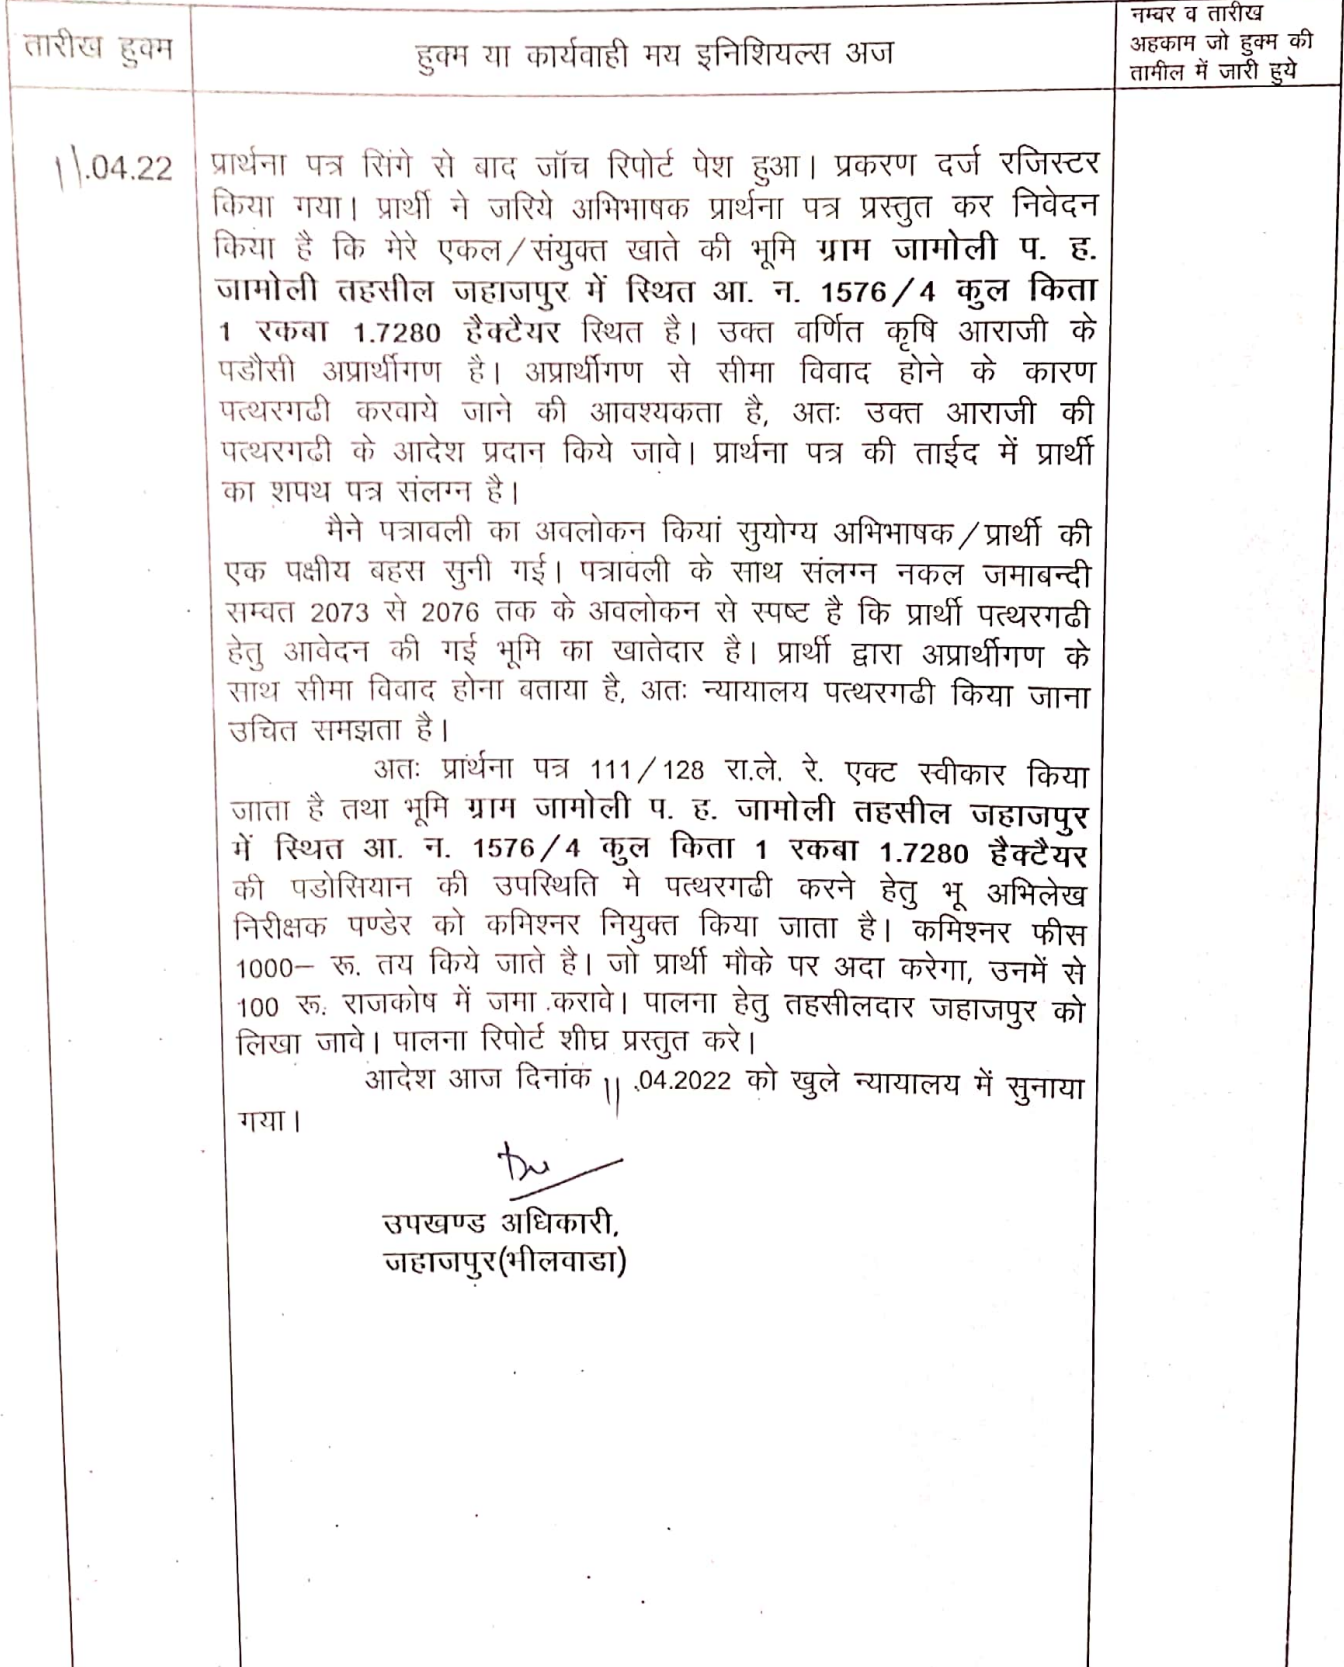 तारीख हुक्म
हुक्म या कार्यवाही मय इनिशियल्स अज
नम्वर व तारीख
अहकाम जो हुक्म की
तामील में जारी हुये
11.04.22
प्रार्थना पत्र सिंगे से बाद जॉच रिपोर्ट पेश हुआ। प्रकरण दर्ज रजिस्टर
किया गया। प्रार्थी ने जरिये अभिभाषक प्रार्थना पत्र प्रस्तुत कर निवेदन
किया है कि मेरे एकल/संयुक्त खाते की भूमि ग्राम जामोली प. ह.
जामोली तहसील जहाजपुर में स्थित आ. न. 1576/4 कुल किता
1 रकबा 1.7280 हैक्टैयर स्थित है। उक्त वर्णित कृषि आराजी के
पडौसी अप्रार्थीगण है। अप्रार्थीगण से सीमा विवाद होने के कारण
पत्थरगढी करवाये जाने की आवश्यकता है, अतः उक्त आराजी की
पत्थरगढी के आदेश प्रदान किये जावे। प्रार्थना पत्र की ताईद में प्रार्थी
का शपथ पत्र संलग्न है।
मैने पत्रावली का अवलोकन कियां सुयोग्य अभिभाषक/प्रार्थी की
एक पक्षीय बहस सुनी गई। पत्रावली के साथ संलग्न नकल जमाबन्दी
सम्वत 2073 से 2076 तक के अवलोकन से स्पष्ट है कि प्रार्थी पत्थरगढी
हेतु आवेदन की गई भूमि का खातेदार है। प्रार्थी द्वारा अप्रार्थीगण के
साथ सीमा विवाद होना बताया है, अतः न्यायालय पत्थरगढी किया जाना
उचित समझता है।
अतः प्रार्थना पत्र 111/128 रा.ले. रे. एक्ट स्वीकार किया
जाता है तथा भूमि ग्राम जामोली प. ह. जामोली तहसील जहाजपुर
में स्थित आ. न. 1576/4 कुल किता 1 रकबा 1.7280 हैक्टैयर
की पडोसियान की उपस्थिति मे पत्थरगढी करने हेतु भू अभिलेख
निरीक्षक पण्डेर को कमिश्नर नियुक्त किया जाता है। कमिश्नर फीस
1000– रू. तय किये जाते है। जो प्रार्थी मौके पर अदा करेगा, उनमें से
100 रू. राजकोष में जमा करावे। पालना हेतु तहसीलदार जहाजपुर को
लिखा जावे। पालना रिपोर्ट शीघ्र प्रस्तुत करे।
आदेश आज दिनांक 11.04.2022 को खुले न्यायालय में सुनाया
गया।
उपखण्ड अधिकारी,
जहाजपुर(भीलवाडा)